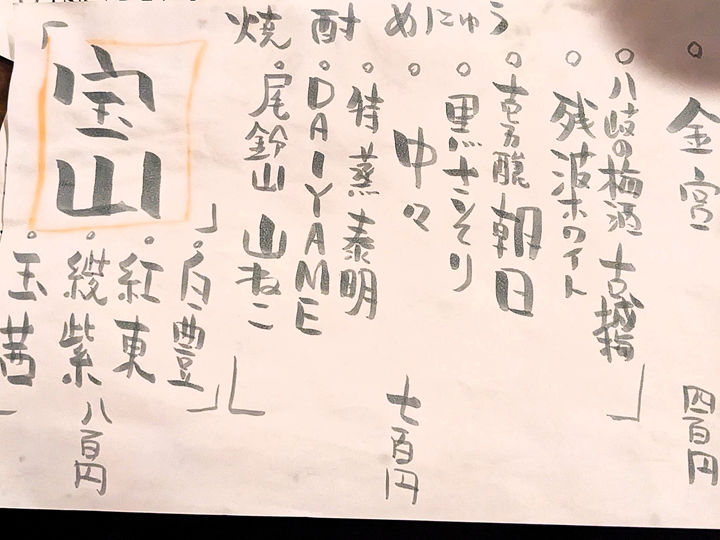 焼酎めにゅう
金宮
四百円
八岐の梅酒 古城梅
残波ホワイト
壱乃醸 朝日
黒さそり
中々
特蒸泰明
DAIYAME
尾鈴山 山ねこ
七百円
「宝山」
白豊
紅東
綾紫
玉茜
八百円